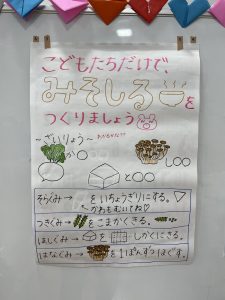 こどもたちだけで、
みそしるを
つくりましょう
〜ざいりょう〜
わかるかな??
か○
し○○
と○○
そらぐみ→ をいちょうぎりにする。
かわもむいてね♡
つきぐみ→ をこまかくきる。
ほしぐみ→ を しかくにきる。
はなぐみ→ を1ぽんずつほぐす。